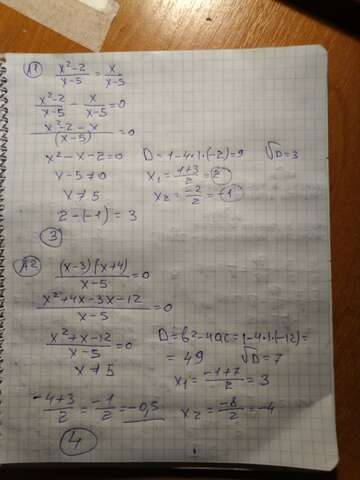 А1 (x²-2)/(x-5) = x/(x-5)
(x²-2)/(x-5) - x/(x-5) = 0
(x²-2-x)/(x-5) = 0
x²-x-2=0 D=1-4·1·(-2)=9 √D=3
x-5≠0 x₁=(1+3)/2=2
x≠5 x₂=-2/2=-1
2-(-1)=3
3
А2 (x-3)(x+4)/(x-5) = 0
(x²+4x-3x-12)/(x-5) = 0
(x²+x-12)/(x-5) = 0 D=b²-4ac=1-4·1·(-12)=
x≠5 =49 √D=7
x₁=(-1+7)/2=3
(-4+3)/2=-1/2=-0,5 x₂=-8/2=-4
4